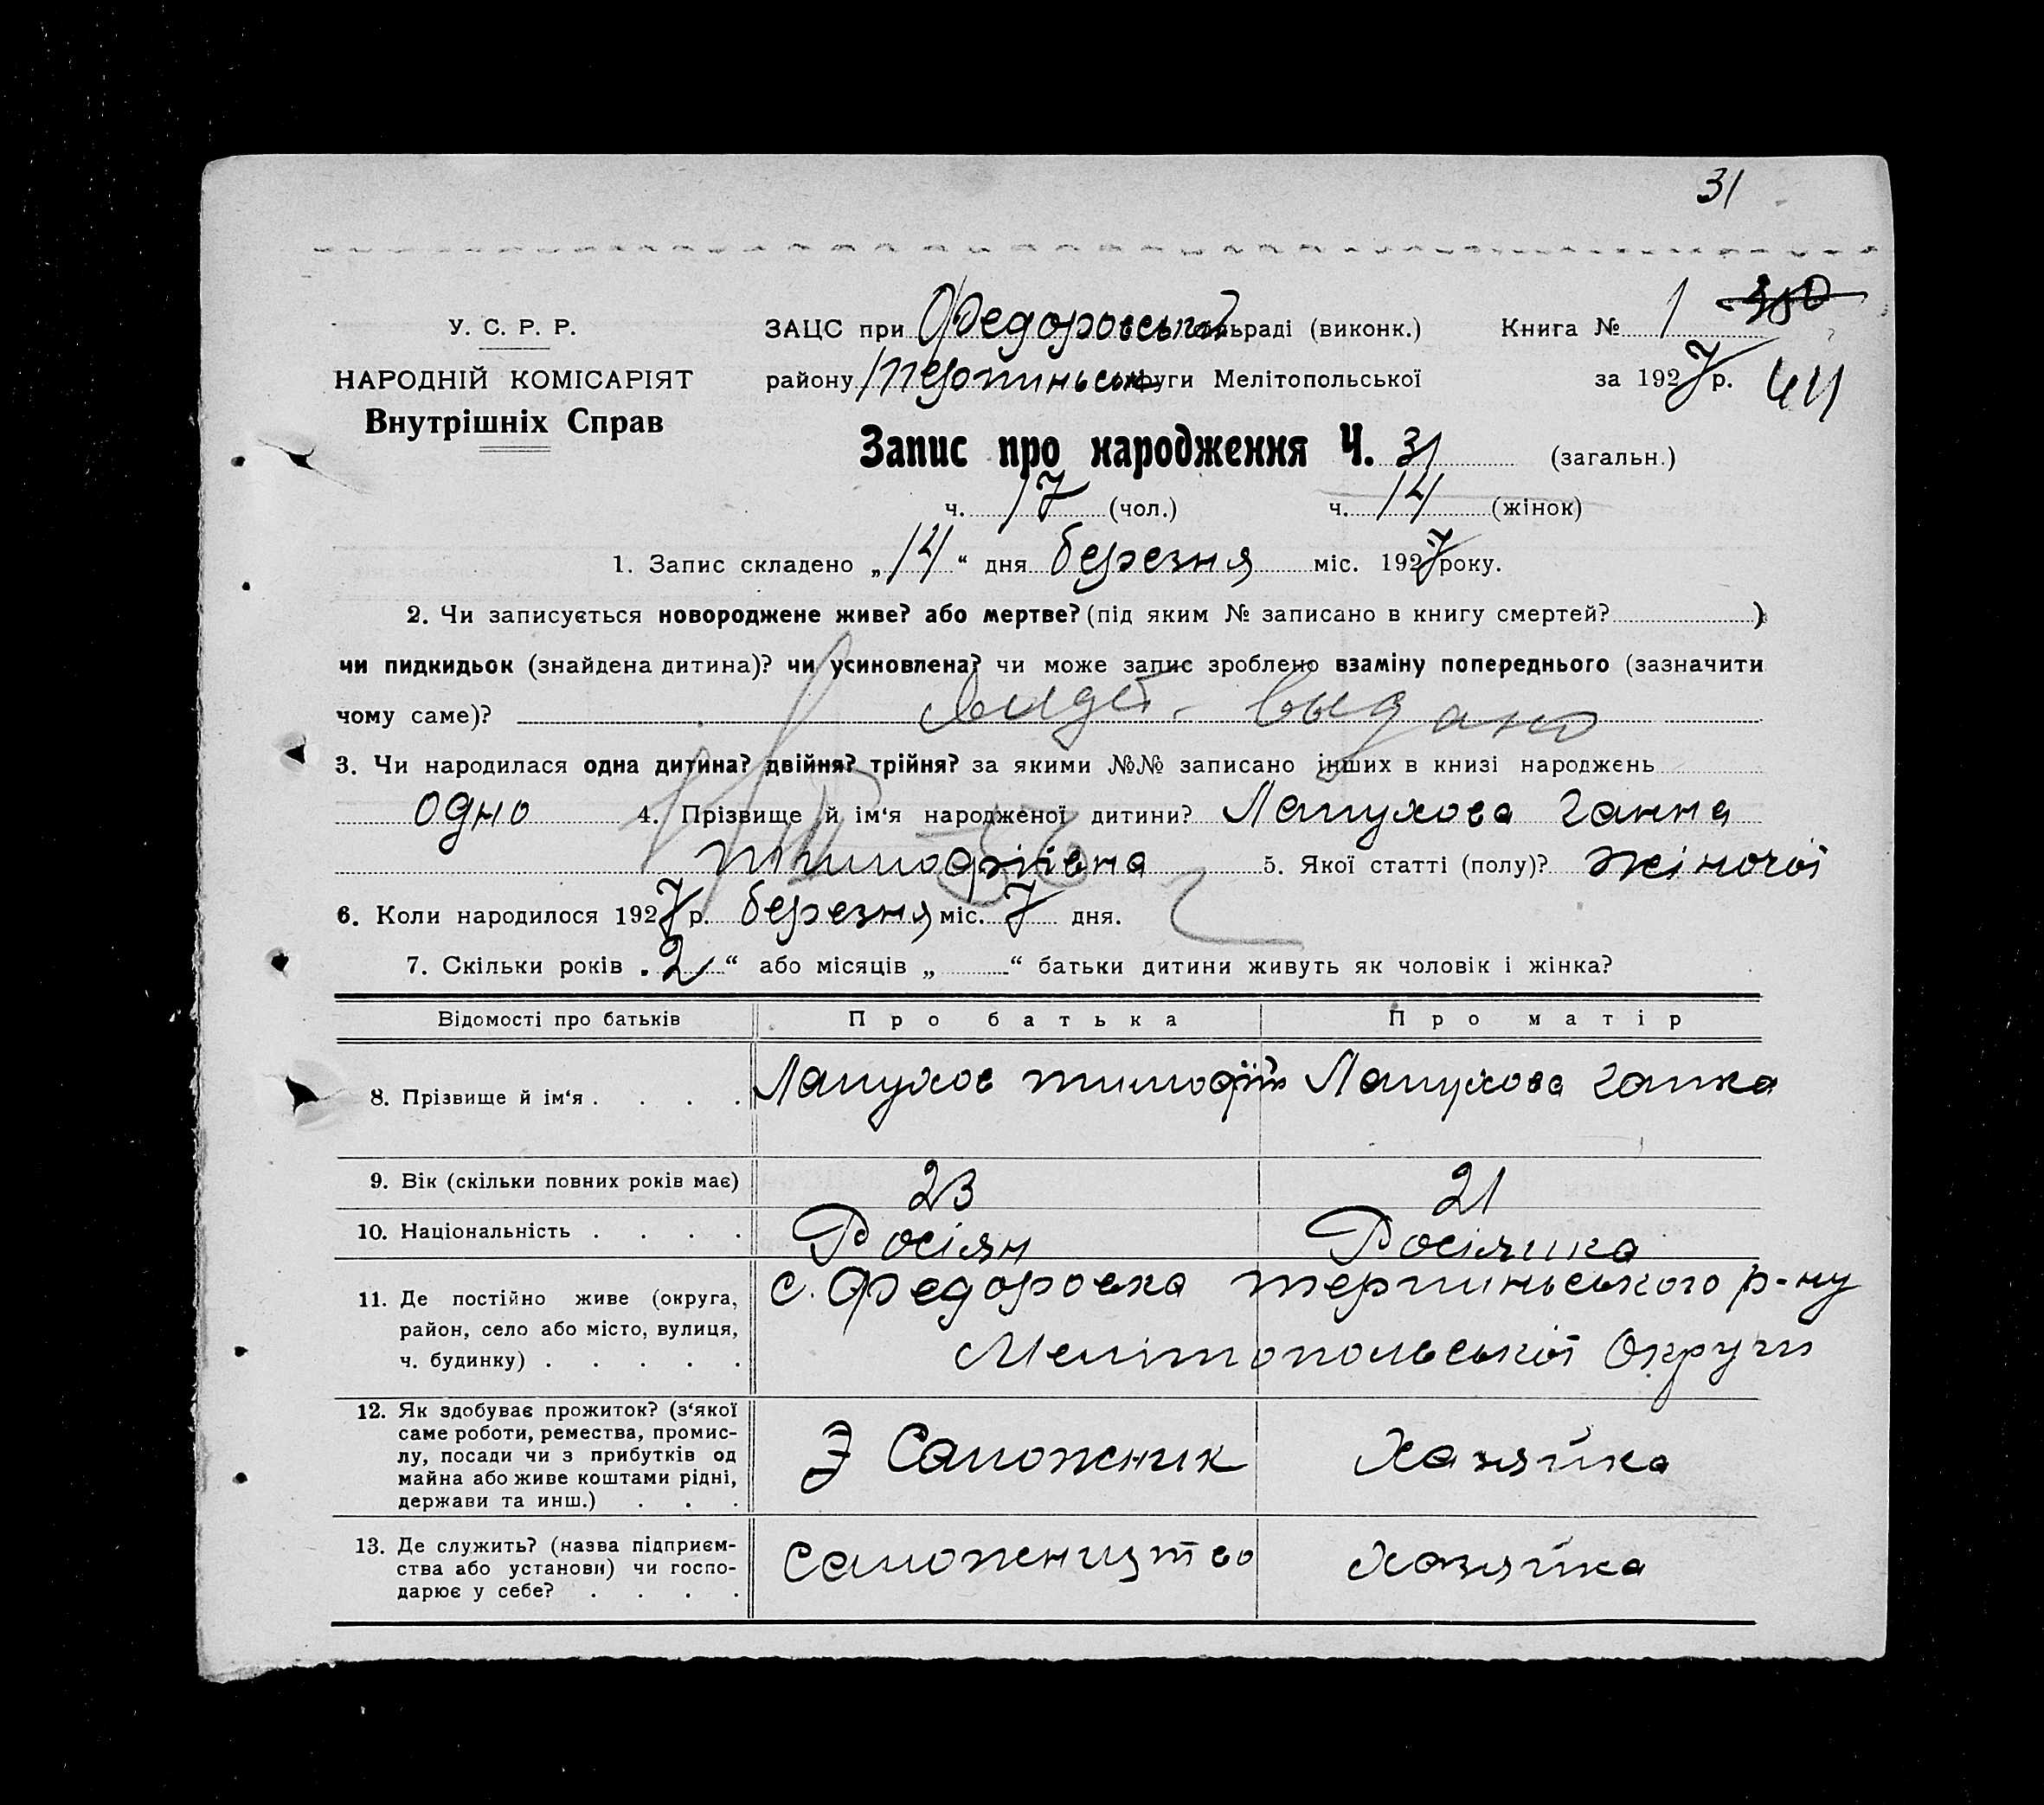 31
У. С. Р. Р.
НАРОДНІЙ КОМІСАРІЯТ
Внутрішніх Справ
ЗАЦС при Федоровській сільраді (виконк.) Книга № 1 350
району Терпиньськ округи Мелітопольської за 1927 р. 44
Запис про народження Ч. 31 (загальн.)
ч. 17 (чол.) ч. 14 (жінок)
1. Запис складено „14“ дня березня міс. 1927 року.
2. Чи записується новороджене живе? або мертве? (під яким № записано в книгу смертей? )
чи пидкидьок (знайдена дитина)? чи усиновлена? чи може запис зроблено взаміну попереднього (зазначити
чому саме)? выдано
3. Чи народилася одна дитина? двійня? трійня? за якими №№ записано інших в книзі народжень
одно 4. Прізвище й ім‘я народженої дитини? Лапухова Ганна
Тимофіївна 5. Якої статті (полу)? жіночої
6. Коли народилося 1927 р. березня міс. 7 дня.
7. Скільки років „2“ або місяців „ “ батьки дитини живуть як чоловік і жінка?
Відомості про батьків Про батька Про матір
8. Прізвище й ім‘я . . . . Лапухов Тимофій Лапухова Ганна
9. Вік (скільки повних років має) 23 21
10. Національність . . . . Росіян Росіянка
11. Де постійно живе (округа,
район, село або місто, вулиця,
ч. будинку) . . . . .
с. Федоровка Терпиньського р-ну
Мелітопольської Округи
12. Як здобуває прожиток? (з‘якої
саме роботи, ремества, промис-
лу, посади чи з прибутків од
майна або живе коштами рідні,
держави та инш.) . . .
З Сапожник Хазяйка
13. Де служить? (назва підприєм-
ства або установи) чи госпо-
дарює у себе? . . . .
Сапожництво Хазяйка